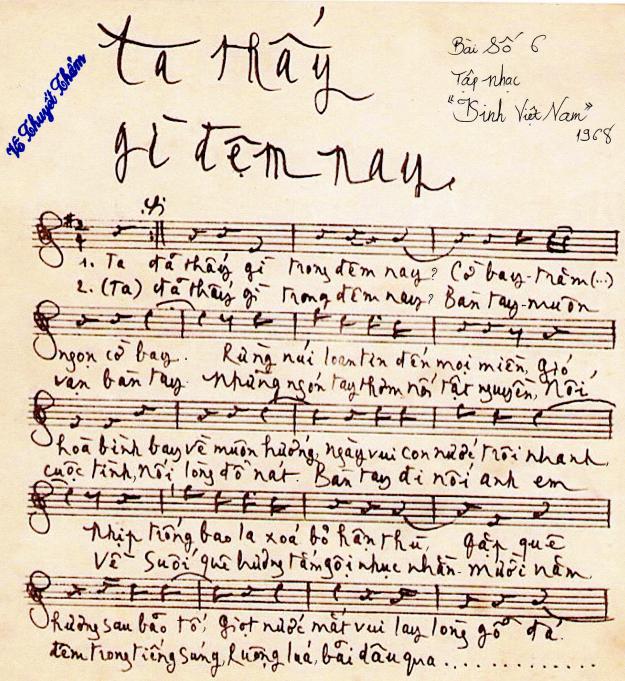 Ta thấy
gì đêm nay
Bài Số 6
Tập nhạc
"Kinh Việt Nam"
1968
Võ Thuyết Thảm
1. Ta đã thấy gì trong đêm nay? Cờ bay trăm (..)
2. (Ta) đã thấy gì trong đêm nay? Bàn tay muôn
ngọn cờ bay. Rừng núi loan tin đến mọi miền, gió
vạn bàn tay. Những ngón tay thơm nối tật nguyền, Nối
hoà bình bay về muôn hướng, ngày vui con nước trôi nhanh,
cuộc tình, nối lòng đổ nát. Bàn tay đi nối anh em
Nhịp trống bao la xoá bỏ hận thù, gặp quê
Về suối quê hương tắm gội nhục nhằn. Mười năm
hương sau bão tố, giọt nước mắt vui lay lòng gỗ đá.
đêm trong tiếng súng, Ruộng lúa, bãi dâu qua . . . . . . . . . . . . .